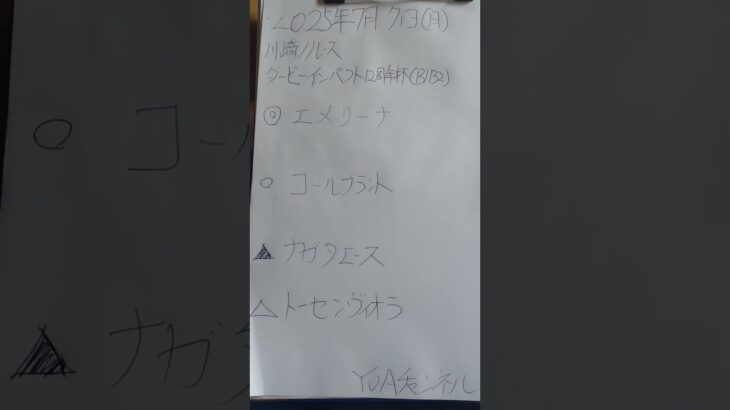 2025年7月7日(月)
川崎11レース
ダービーインパクト12周年杯(B1B2)
◎ エメリーナ
○ コールブランド
▲ ナガタエース
△ トーセンヴィオラ
YUAチャンネル